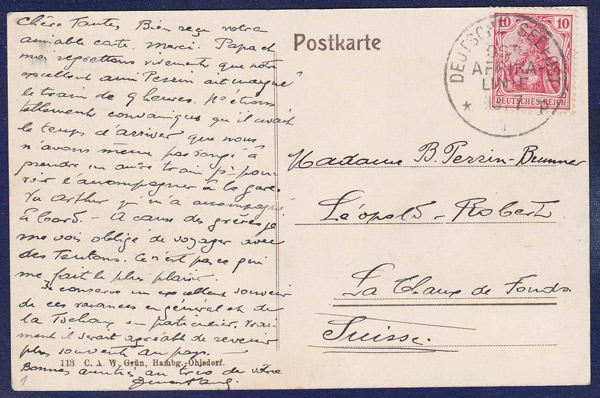 Chère Tantes, Bien reçu votre
amiable carte. Merci. Papa et
moi regrettons vivement que notre
excellent ami Perrin ait manqué
le train de 9 heures. Ns étions
tellement convaincus qu'il avait
le temps d'arriver que nous
n'avons même pas songé à
prendre un autre train pr pour-
voir l'accompagner à la gare.
Vu Arthur qui m'a accompagné
à bord. - A cause des grèves je
me vois obligé de voyager avec
des Teutons. Ce n'est pas ce qui
me fait le plus plaisir.
Je conserve un excellent souvenir
de ces vacances en général et de
la Tschaux en particulier. Vrai-
ment il serait agréable de revenir
plus souvent au pays. -
Bonnes amitiés au trio de votre
113 C. A. W. Grün, Hambg.-Ohlsdorf.
1
Postkarte
DEUTSCHE SEEPOST
OST-
AFRIKA-
LINIE
10 10
DEUTSCHES REICH
Madame B. Perrin-Brunner
Léopold-Robert
La Chaux de Fonds
Suisse.